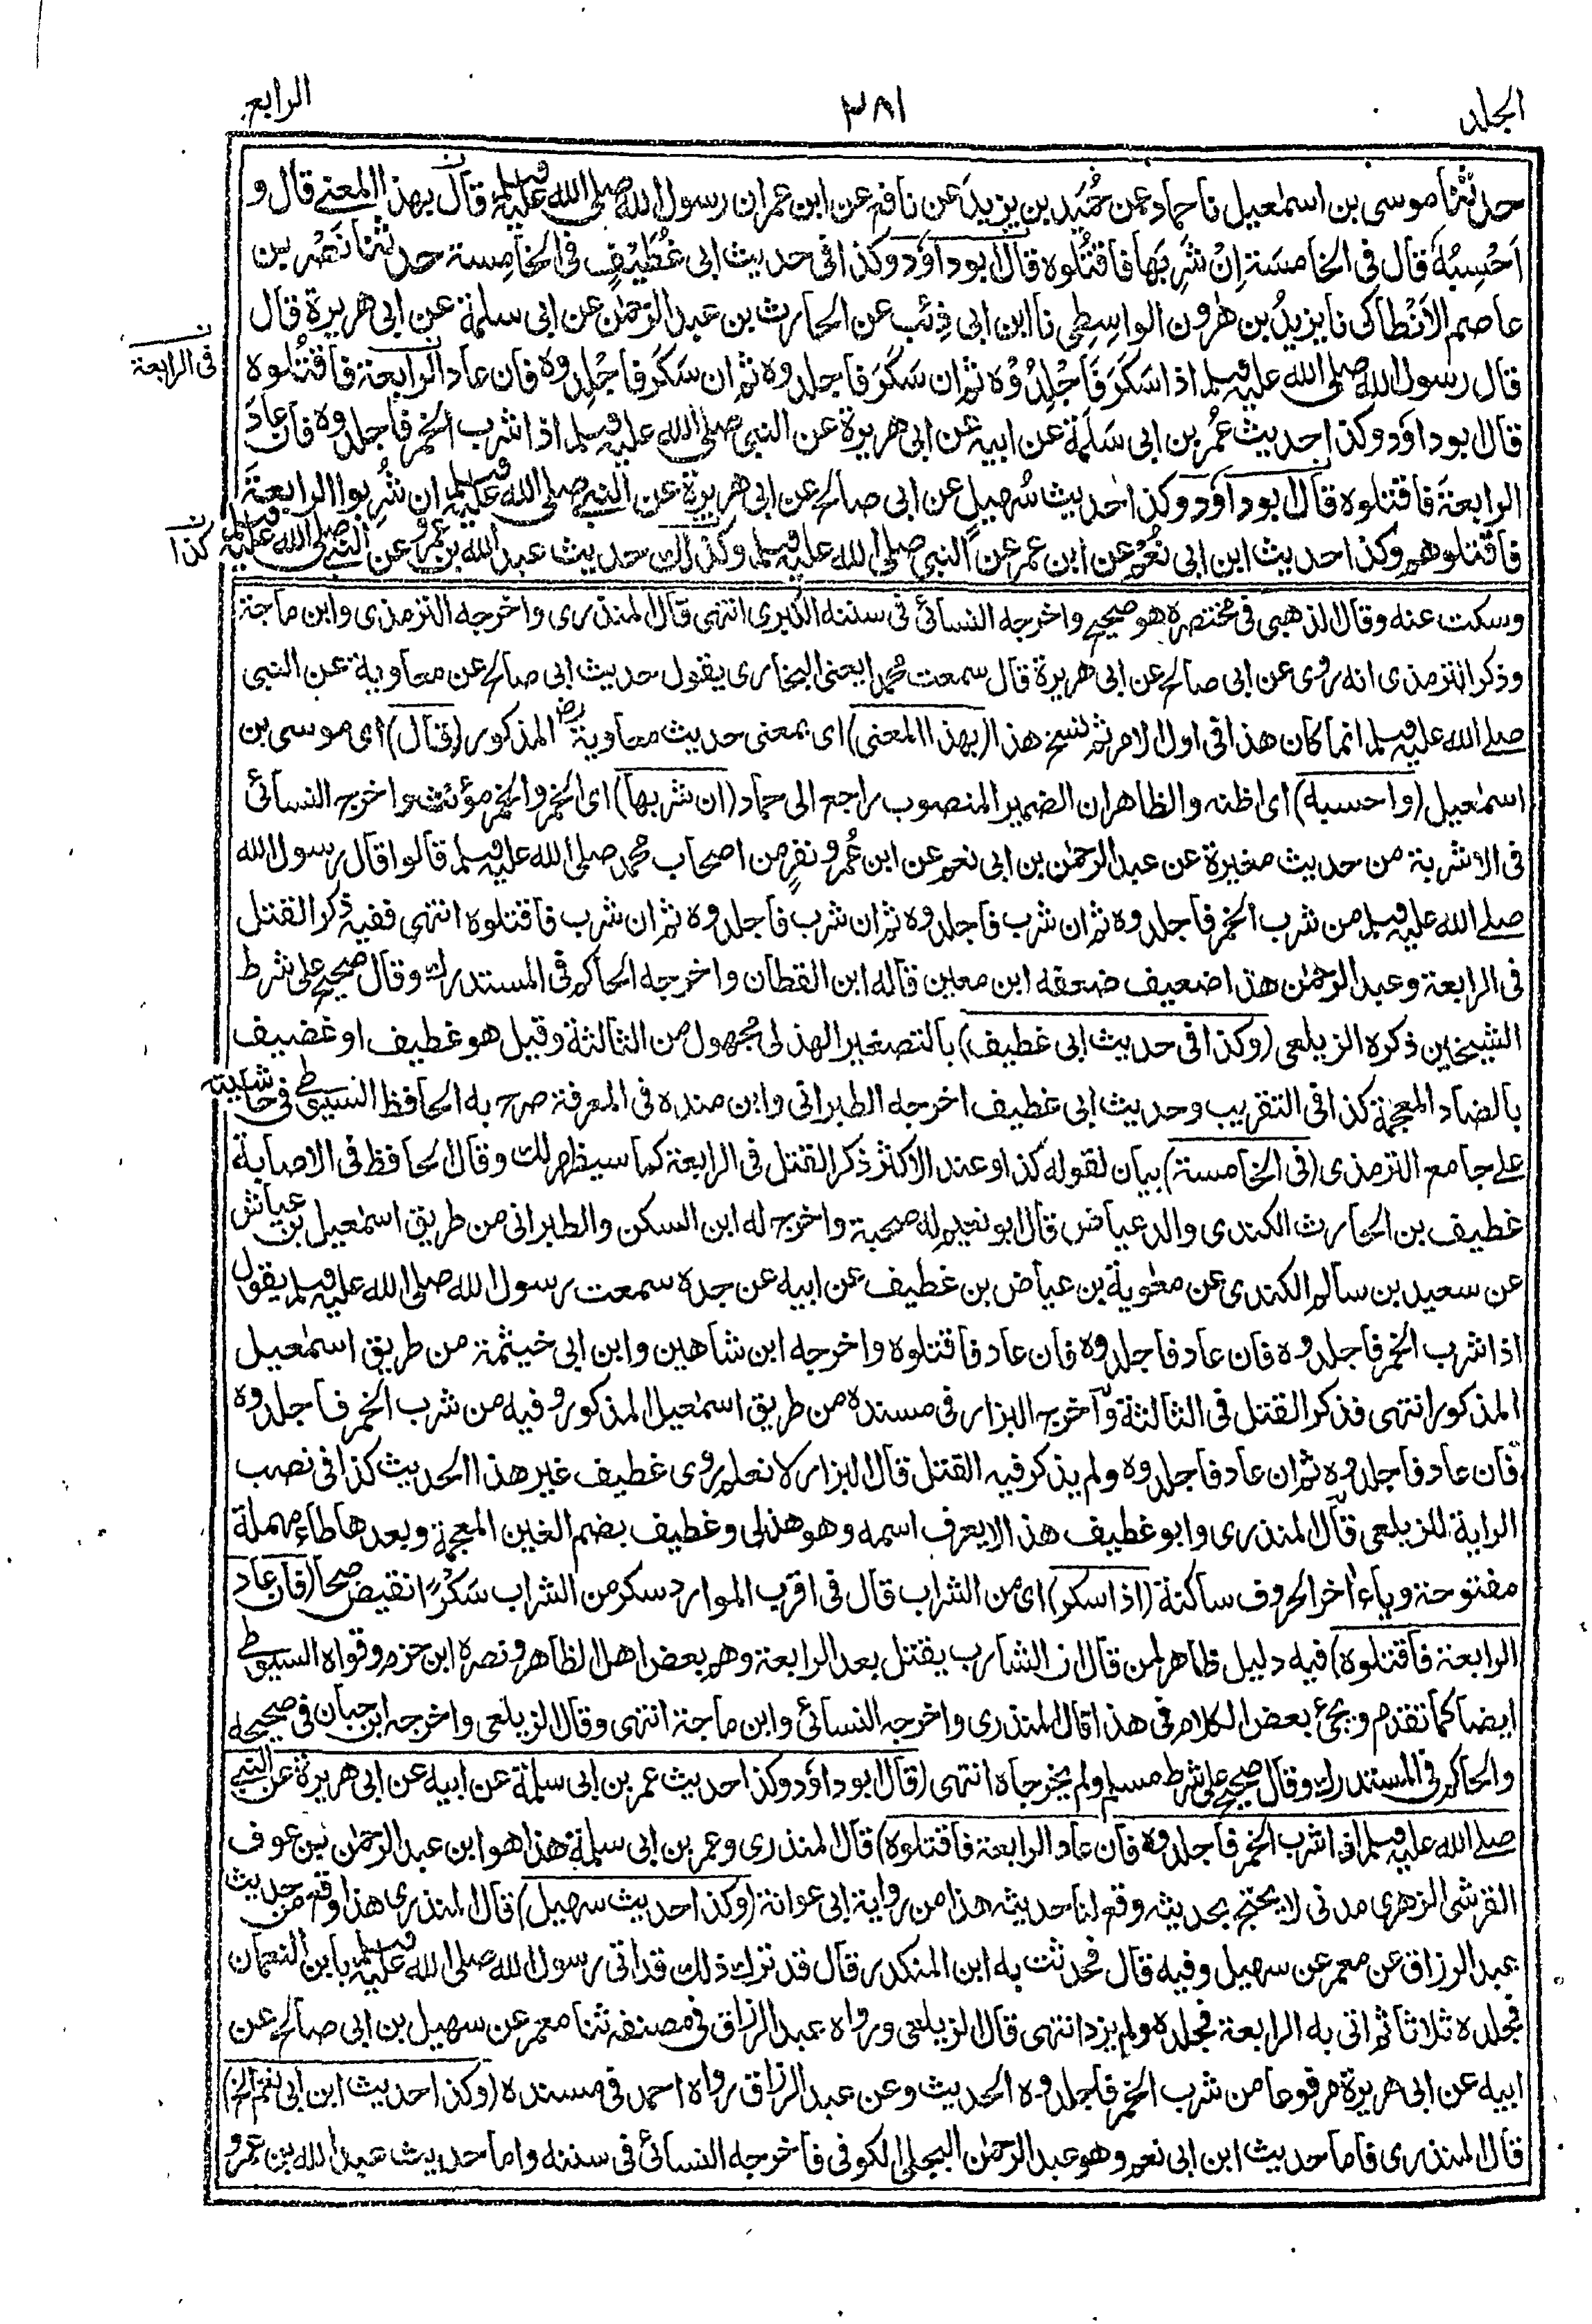 المجلد
٣٨١
الرابع
حدثنا موسى بن اسمٰعيل نا حماد عن حُمَيد بن يزيدَ عن نافع عن ابن عمر ان رسول الله صلى الله عليه وسلم قال بهذا المعنى قال و
اَحْسِبُهُ قال فى الخامسَة اِنْ شَرِبَها فاقتُلوه قال ابو داوٗد وكذا فى حديث ابى غُطَيْفٍ فى الخامِسة حدثنا نَصْر بن
عاصم الاَنْطاكى نا يزيدُ بن هٰرون الواسِطِى نا ابن ابى ذِئب عن الحارث بن عبد الرحمٰن عن ابى سلمة عن ابى هريرة قال
قال رسول الله صلى الله عليه وسلم اذا سَكَرَ فَاجْلِدُوْه ثم ان سَكَرَ فاجلدوه ثم ان سَكَرَ فاجْلِدوه فان عاد الرابعة فاقتُلوه
فى الرابعة
قال ابو داوٗد وكذا حديث عُمر بن ابى سَلَمة عن ابيه عن ابى هريرة عن النبى صلى الله عليه وسلم اذا شرب الخمر فاجلدوه فان عادَ
الرابعةَ فاقتلوه قال ابو داوٗد وكذا حديث سُهيلٍ عن ابى صالح عن ابى هريرة عن النبى صلى الله عليه وسلم ان شُرِبوا الرابعةَ
فاقتلوهم وكذا حديث ابن ابى نُعْم عن ابن عمر عن النبى صلى الله عليه وسلم وكذلك حديث عبد الله بن عَمرو عن النبى صلى الله عليه وسلم
كذا
وسكت عنه وقال الذهبى فى مختصره هو صحيح واخرجه النسائى فى سننه الكبرى انتهى قال المنذرى واخرجه الترمذى وابن ماجة
وذكر الترمذى انه روى عن ابى صالح عن ابى هريرة قال سمعت محمدا يعنى البخارى يقول حديث ابى صالح عن معاوية عن النبى
صلے الله عليه وسلم انما كان هذا فى اول الامر ثم نسخ هذا (بهذا المعنى) اى بمعنى حديث معاوية رض المذكور (قال) اى موسى بن
اسمٰعيل (واحسبه) اى اظنه والظاهر ان الضمير المنصوب راجع الى حماد (ان شربها) اى الخمر والخمر مؤنث واخرجه النسائى
فى الاشربة من حديث مغيرة عن عبد الرحمٰن بن ابى نعم عن ابن عُمر ونفرٍ من اصحاب محمد صلى الله عليه وسلم قالوا قال رسول الله
صلے الله عليه وسلم من شرب الخمر فاجلدوه ثم ان شرب فاجلدوه ثم ان شرب فاجلدوه ثم ان شرب فاقتلوه انتهى ففيه ذكر القتل
فى الرابعة وعبد الرحمٰن هذا ضعيف ضعفه ابن معين قاله ابن القطان واخرجه الحاكم فى المستدرك وقال صحيح على شرط
الشيخين ذكره الزيلعى (وكذا فى حديث ابى غطيف) بالتصغير الهذلى مجهول من الثالثة وقيل هو غطيف او غضيف
بالضاد المعجمة كذا فى التقريب وحديث ابى غطيف اخرجه الطبرانى وابن منده فى المعرفة صرح به الحافظ السيوطى فى حاشيته
علے جامع الترمذى (فى الخامسة) بيان لقوله كذا وعند الاكثر ذكر القتل فى الرابعة كما سيظهر لك وقال الحافظ فى الاصابة
غطيف بن الحارث الكندى والد عياض قال ابو نعيم له صحبة واخرج له ابن السكن والطبرانى من طريق اسمٰعيل بن عياش
عن سعيد بن سالم الكندى عن معٰوية بن عياض بن غطيف عن ابيه عن جده سمعت رسول الله صلى الله عليه وسلم يقول
اذا شرب الخمر فاجلدوه فان عاد فاجلدوه فان عاد فاقتلوه واخرجه ابن شاهين وابن ابى خيثمة من طريق اسمٰعيل
المذكور انتهى فذكر القتل فى الثالثة واخرجه البزار فى مسنده من طريق اسمٰعيل المذكور وفيه من شرب الخمر فاجلدوه
فان عاد فاجلدوه ثم ان عاد فاجلدوه ولم يذكر فيه القتل قال البزار لا نعلم روى غطيف غير هذا الحديث كذا فى نصب
الراية للزيلعى قال المنذرى وابو غطيف هذا لا يعرف اسمه وهو هذلى وغطيف بضم الغين المعجمة وبعدها طاء مهملة
مفتوحة وياء اٰخر الحروف ساكنة (اذا سكر) اى من الشراب قال فى اقرب الموارد سكر من الشراب سَكْرًا نقيض صحا (فان عاد
الرابعة فاقتلوه) فيه دليل ظاهر لمن قال ان الشارب يقتل بعد الرابعة وهم بعض اهل الظاهر ونصره ابن حزم وقواه السيوطى
ايضا كما تقدم ويجئ بعض الكلام فى هذا قال المنذرى واخرجه النسائى وابن ماجة انتهى وقال الزيلعى واخرجه ابن حبان فى صحيحه
والحاكم فى المستدرك وقال صحيح على شرط مسلم ولم يخرجاه انتهى (قال ابو داوٗد وكذا حديث عمر بن ابى سلمة عن ابيه عن ابى هريرة عن النبى
صلے الله عليه وسلم اذا شرب الخمر فاجلدوه فان عاد الرابعة فاقتلوه) قال المنذرى وعمر بن ابى سلمة هذا هو ابن عبد الرحمٰن بن عوف
القرشى الزهرى مدنى لا يحتج بحديثه وقع لنا حديثه هذا من رواية ابى عوانة (وكذا حديث سهيل) قال المنذرى هذا وقع من حديث
عبد الرزاق عن معمر عن سهيل وفيه قال فحدثت به ابن المنكدر قال قد ترك ذلك قد اتى رسول الله صلى الله عليه وسلم بابن النعمان
فجلده ثلاثا ثم اتى به الرابعة فجلده ولم يزد انتهى قال الزيلعى ورواه عبد الرزاق فى مصنفه ثنا معمر عن سهيل بن ابى صالح عن
ابيه عن ابى هريرة مرفوعا من شرب الخمر فاجلدوه الحديث وعن عبد الرزاق رواه احمد فى مسنده (وكذا حديث ابن ابى نعم الخ)
قال المنذرى فاما حديث ابن ابى نعم وهو عبد الرحمٰن البجلى الكوفى فاخرجه النسائى فى سننه واما حديث عبد الله بن عمرو